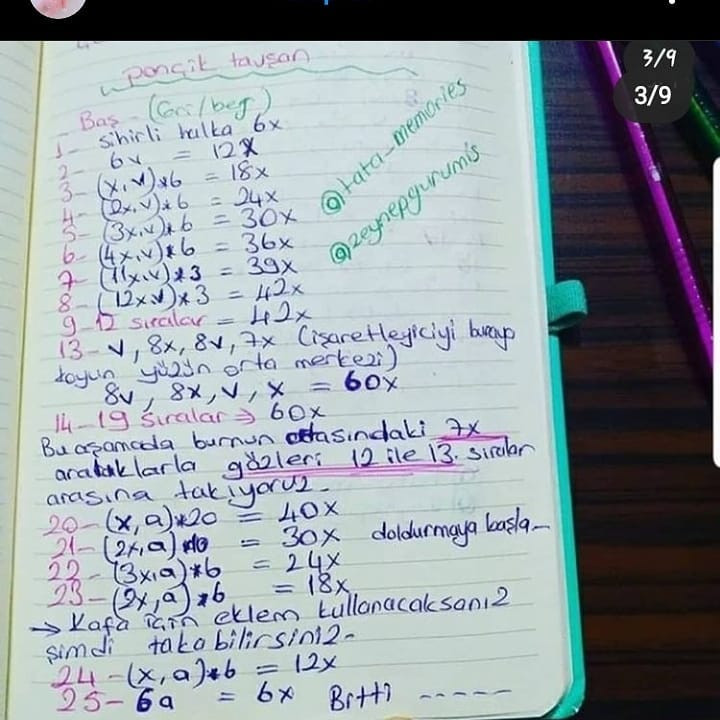 3/9
3/9
ponçik tavşan
Baş - (Gri/bej)
1- sihirli halka 6x
2- 6v = 12x
3- (x,v)*6 = 18x
4- (2x,v)*6 = 24x
5- (3x,v)*6 = 30x
6- (4x,v)*6 = 36x
7- (11x,v)*3 = 39x
8- (12xv)*3 = 42x
9-12 sıralar = 42x
13- v, 8x, 8v, 7x (işaretleyiciyi buraya
koyun yüzün orta merkezi)
8v, 8x, v, x = 60x
14-19 sıralar → 60x
Bu aşamada burnun ortasındaki 7x
aralıklarla gözleri 12 ile 13. sıralar
arasına takıyoruz-
20- (x,a)*20 = 40x
21- (2x,a)*10 = 30x doldurmaya başla-
22- (3x,a)*6 = 24x
23- (2x,a)*6 = 18x
→ Kafa için eklem kullanacaksanız
şimdi takabilirsiniz-
24- (x,a)*6 = 12x
25- 6a = 6x Bitti -----
@tata_memories
@zeynepgurumis